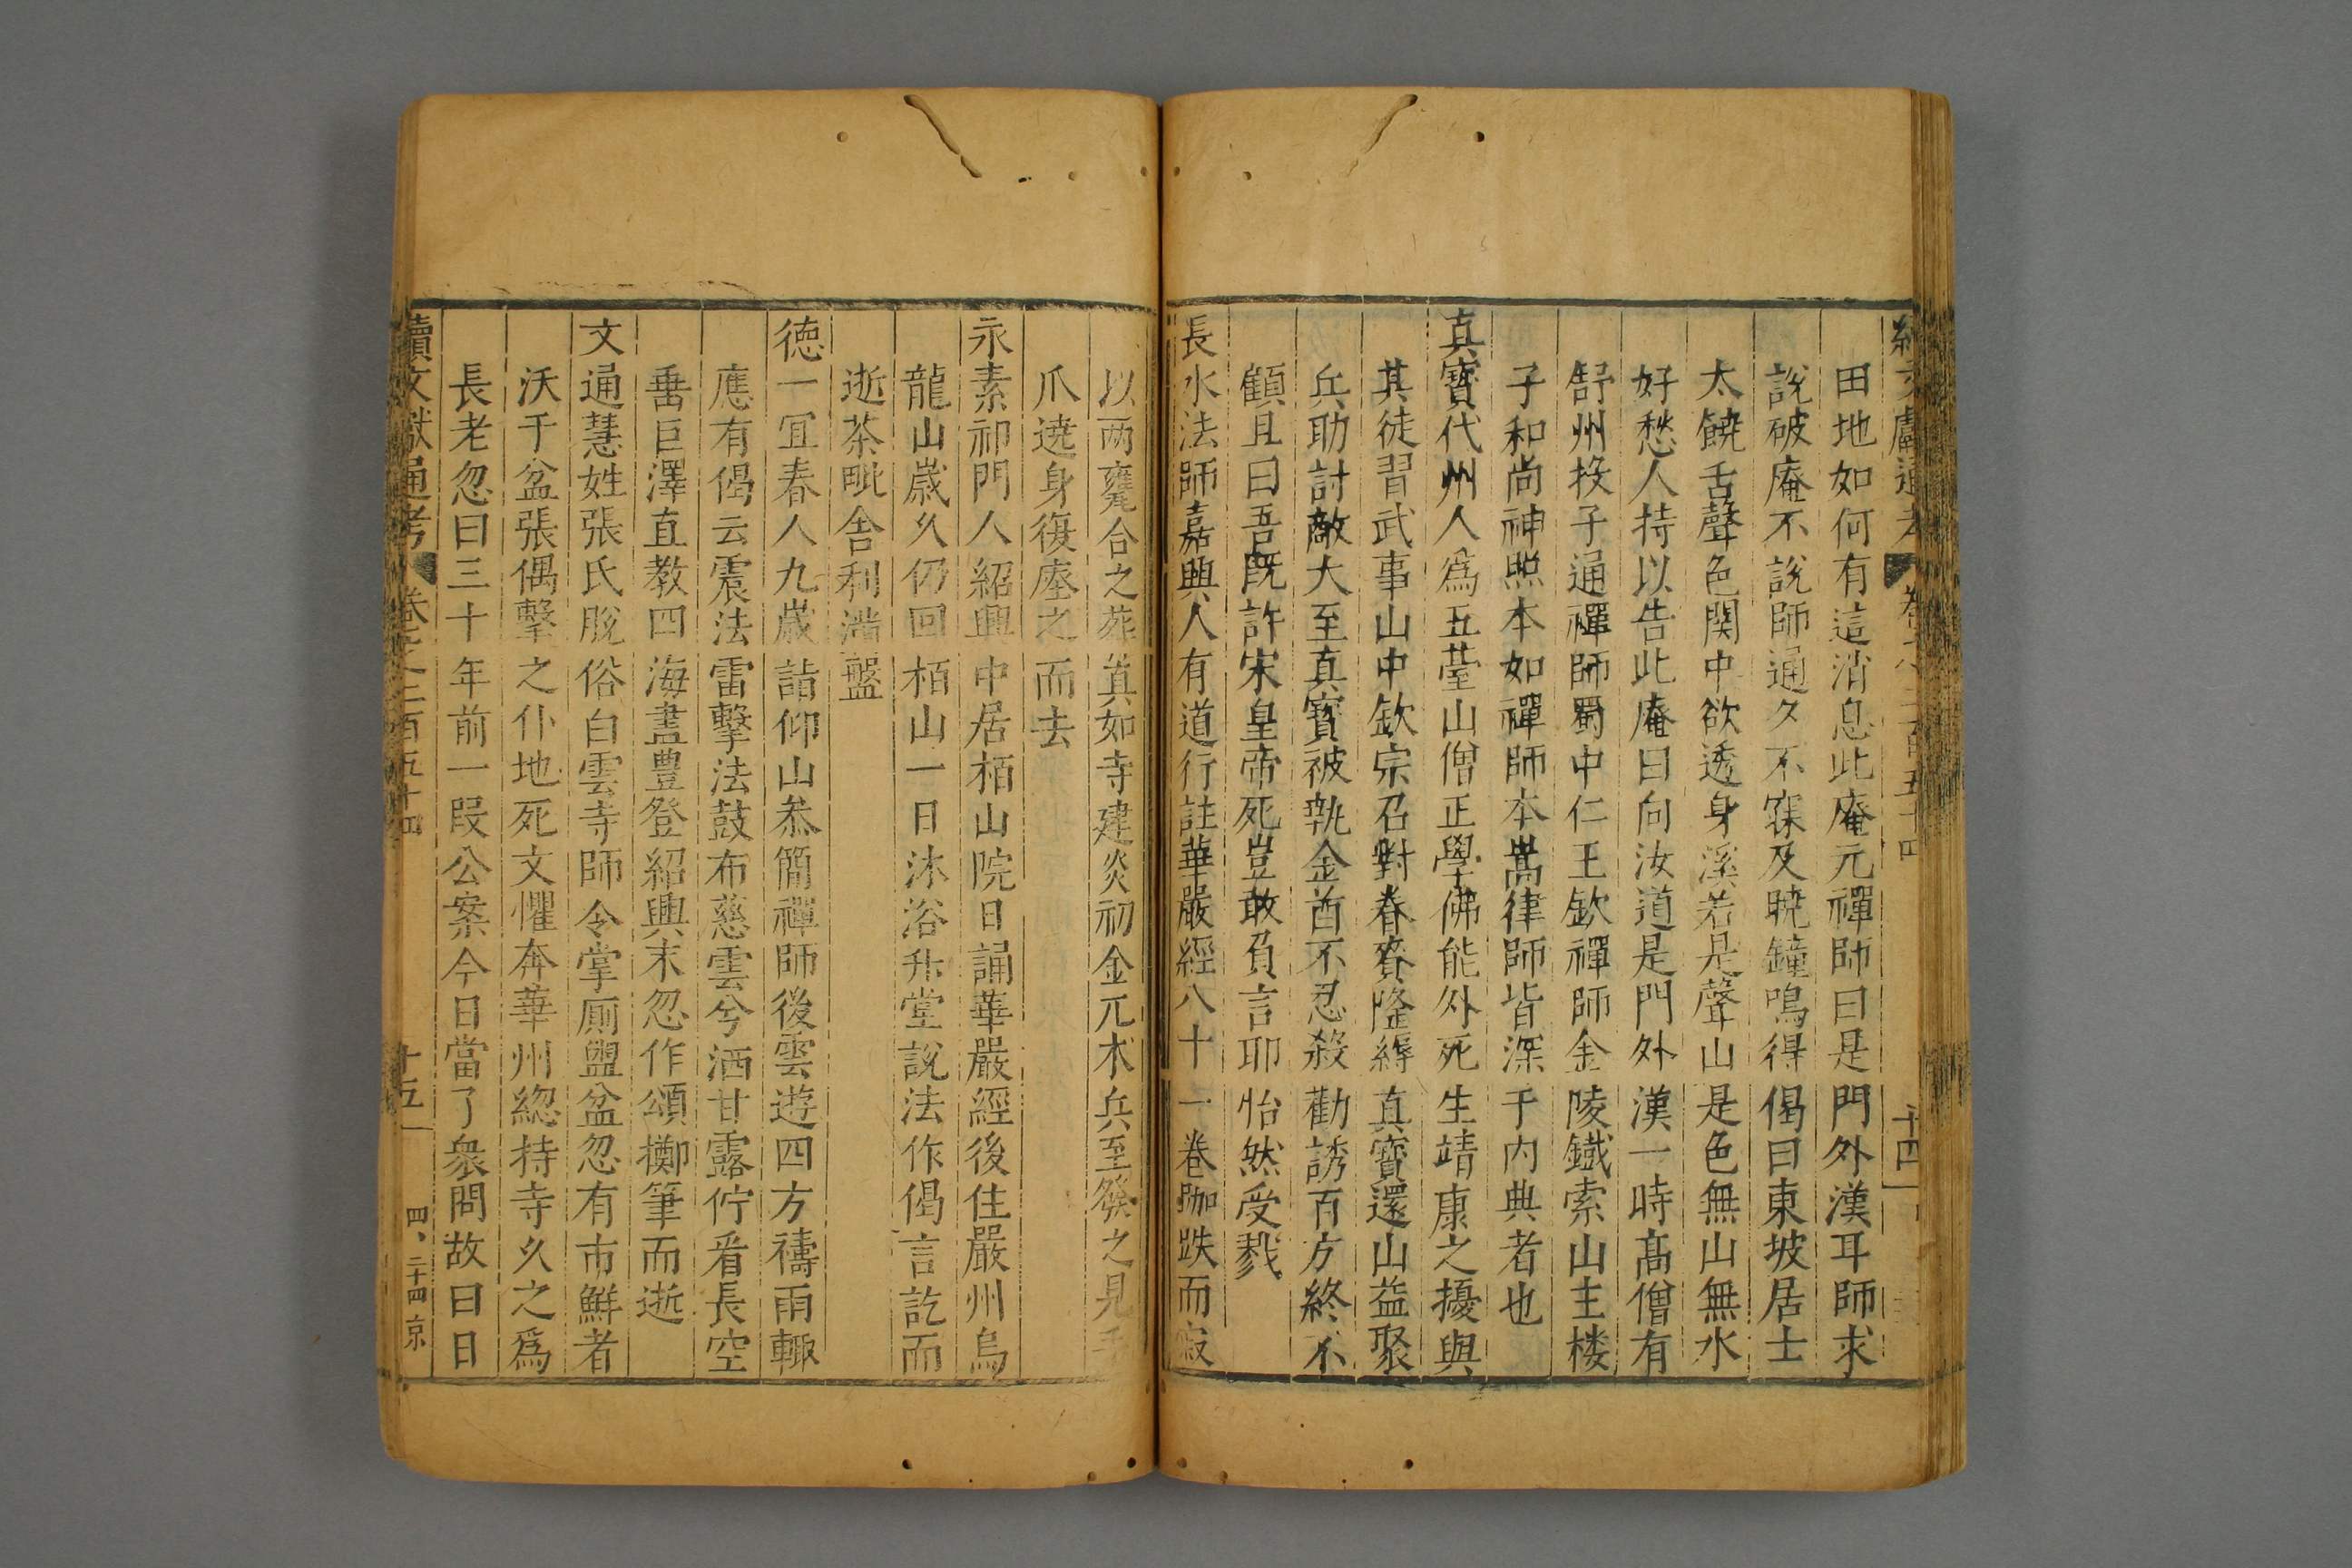 續文獻通考 卷之二百五十四 十四
田地如何有這消息此庵元禪師曰是門外漢耳師求
說破庵不說師通夕不寐及曉鐘鳴得偈曰東坡居士
太饒舌聲色関中欲透身溪若是聲山是色無山無水
好愁人持以告此庵曰向汝道是門外漢一時髙僧有
舒州投子通禪師蜀中仁王欽禪師金陵鐡索山主楼
子和尚神照本如禪師本嵩律師皆深于内典者也
真寳代州人為五䑓山僧正學佛能外死生靖康之擾與
其徒習武事山中欽宗召對眷賚隆縟真寳還山益聚
兵助討敵大至真寳被執金酋不忍殺勸誘百方終不
顧且曰吾既許宋皇帝死豈敢負言耶怡然受戮
長水法師嘉興人有道行註華嚴經八十一卷跏趺而寂
以两甕合之葬真如寺建炎初金兀术兵至發之見
爪遶身復瘞之而去
永素祁門人紹興中居栢山院日誦華嚴經後住嚴州烏
龍山嵗久仍回栢山一日沐浴升堂說法作偈言訖而
逝茶毗舍利滿盤
德一冝春人九嵗詣仰山叅簡禪師後雲遊四方禱雨輙
應有偈云震法雷擊法鼓布慈雲兮洒甘露佇看長空
垂巨澤直教四海盡豊登紹興末忽作頌擲筆而逝
文通慧姓張氏脫俗白雲寺師令掌厠盥盆忽有市鮮者
沃于盆張偶擊之仆地死文懼奔華州緫持寺久之為
長老忽曰三十年前一段公案今日當了衆問故曰日
續文獻通考 卷之二百五十四 十五 四、二十四 京